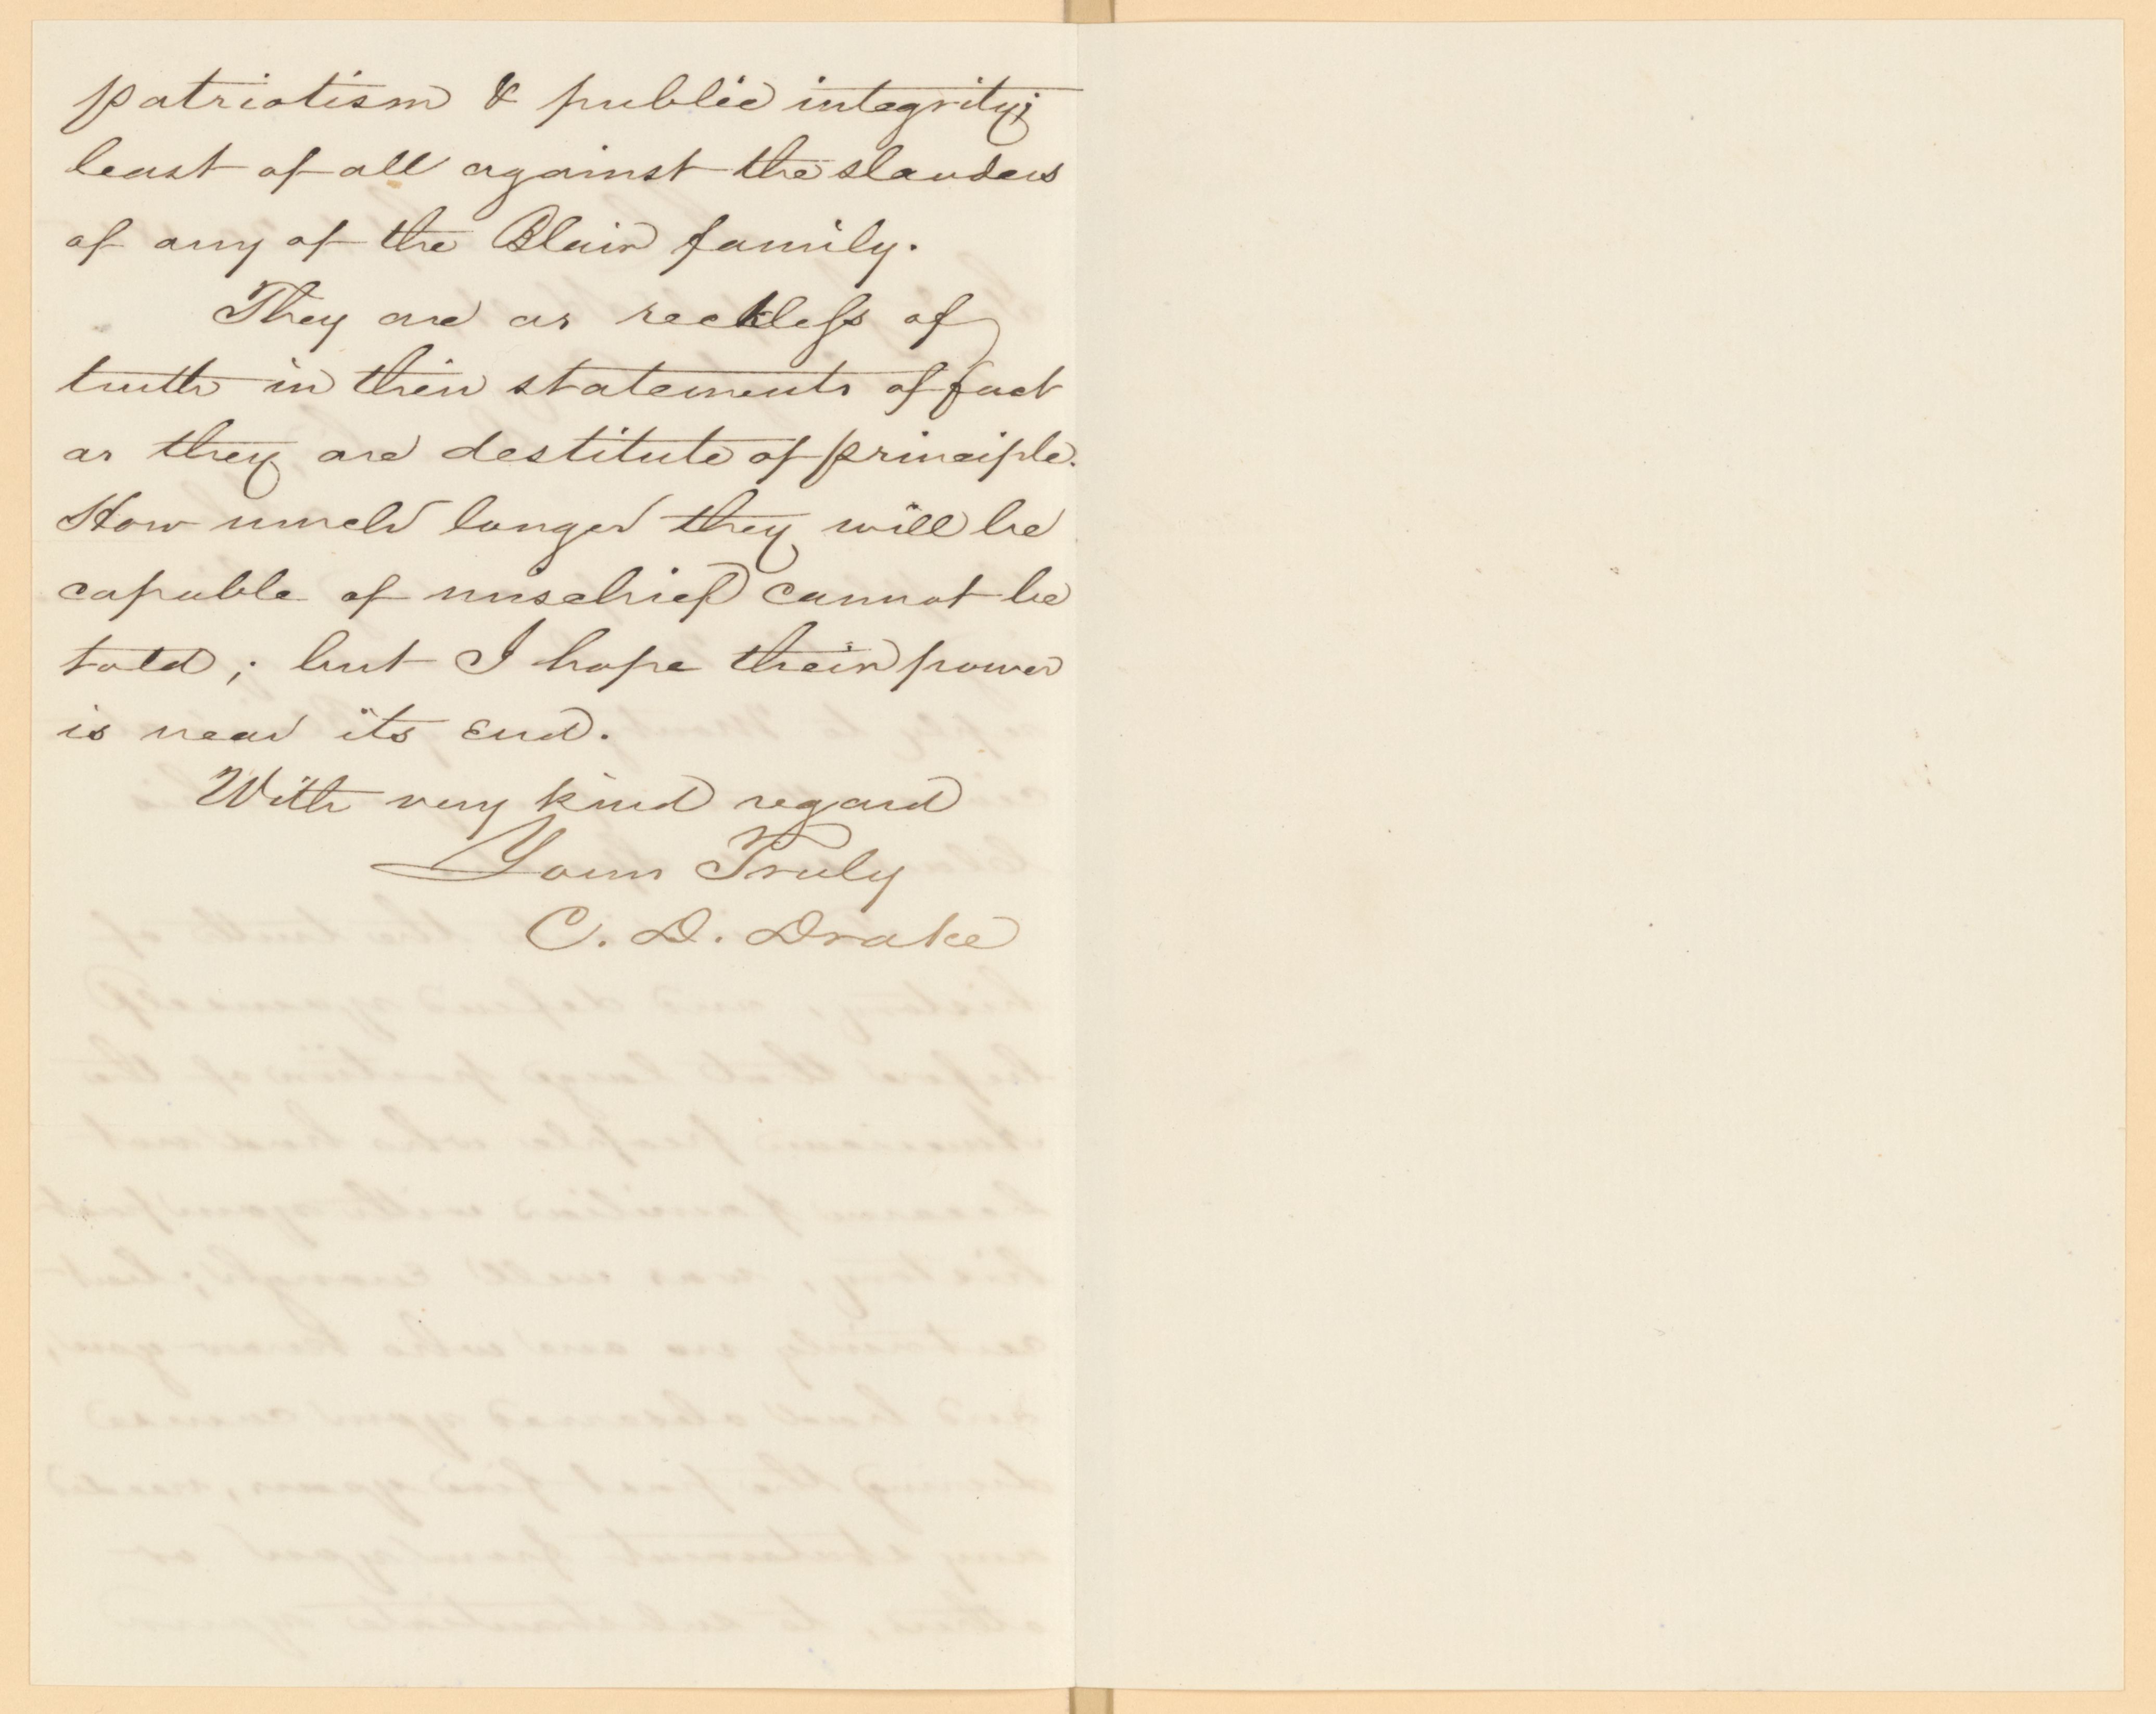 patriotism & public integrity;
least of all against the slanders
of any of the Blair family.
They are as reckless of
truth in their statements of fact
as they are destitute of principle.
How much longer they will be
capable of mischief cannot be
told; but I hope their power
is near its end.
With very kind regard
Yours Truly
C. D. Drake